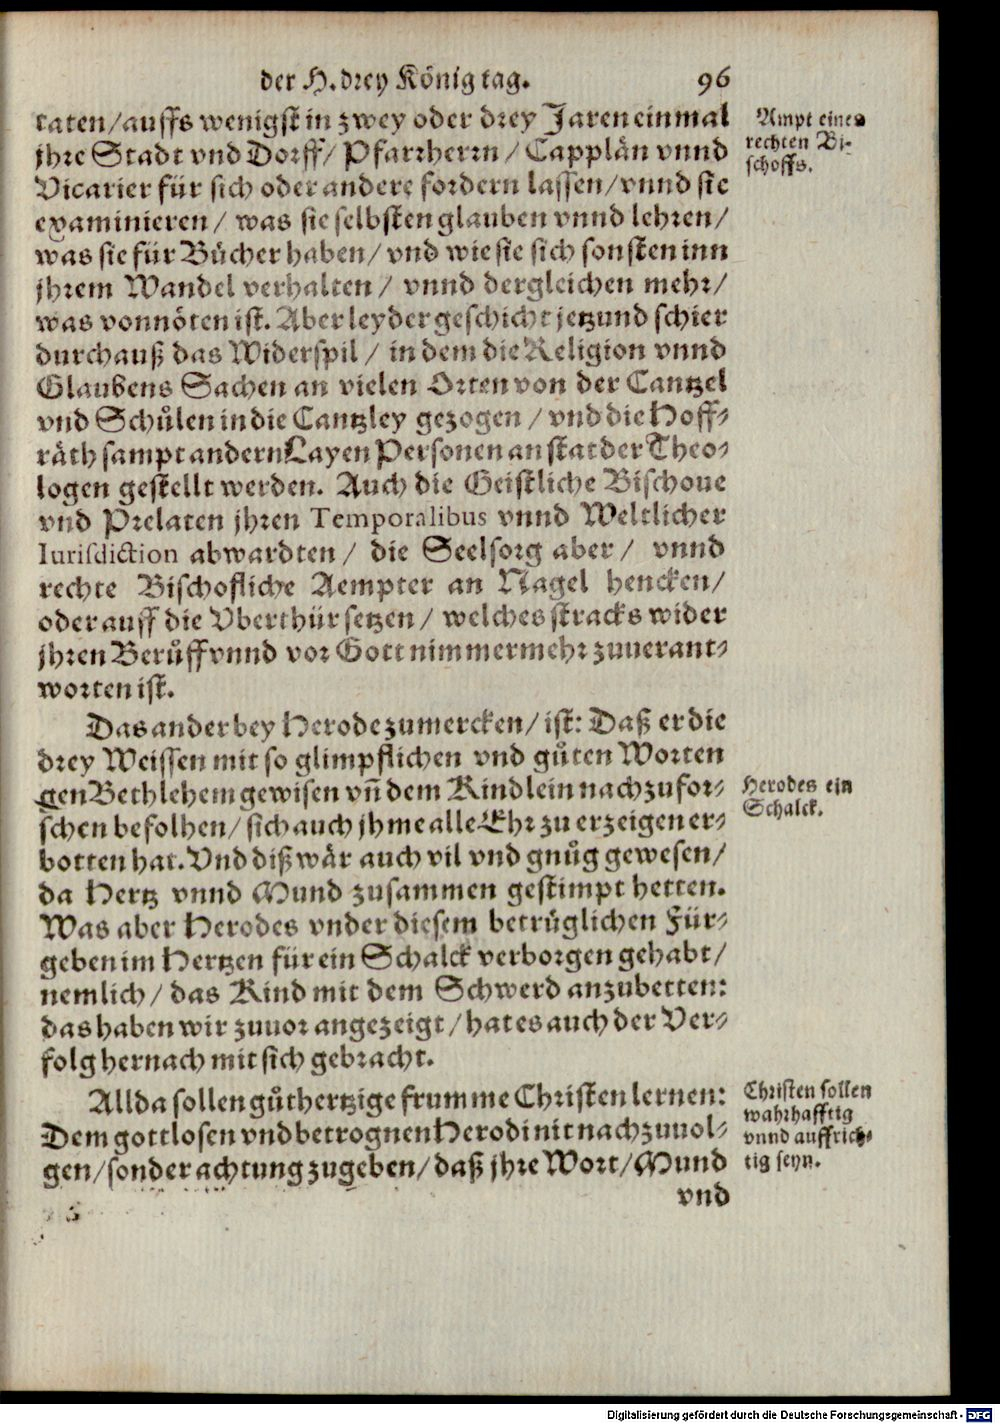 der H. drey König tag. 96
taten/auffs wenigst in zwey oder drey Jaren einmal
jhre Stadt vnd Dorff/ Pfarrherrn/ Capplän vnnd
Vicarier für sich oder andere fordern lassen/vnnd sie
examinieren/ was sie selbsten glauben vnnd lehren/
was sie für Bücher haben/ vnd wie sie sich sonsten inn
jhrem Wandel verhalten/ vnnd dergleichen mehr/
was vonnöten ist. Aber leyder geschicht jetzund schier
durchauß das Widerspil/ in dem die Religion vnnd
Glaubens Sachen an vielen Orten von der Cantzel
vnd Schůlen in die Cantzley gezogen/ vnd die Hoff-
räth sampt andern Layen Personen an stat der Theo-
logen gestellt werden. Auch die Geistliche Bischoue
vnd Prelaten jhren Temporalibus vnnd Weltlicher
Iurisdiction abwardten/ die Seelsorg aber/ vnnd
rechte Bischofliche Aempter an Nagel hencken/
oder auff die Vberthür setzen/ welches stracks wider
jhren Berůff vnnd vor Gott nimmermehr zuuerant-
worten ist.
Das ander bey Herode zumercken/ ist: Daß er die
drey Weissen mit so glimpflichen vnd gůten Worten
gen Bethlehem gewisen vñ dem Kindlein nachzufor-
schen befolhen/ sich auch jhme alle Ehr zu erzeigen er-
botten hat. Vnd diß wär auch vil vnd gnůg gewesen/
da Hertz vnnd Mund zusammen gestimpt hetten.
Was aber Herodes vnder diesem betrüglichen Für-
geben im Hertzen für ein Schalck verborgen gehabt/
nemlich/ das Kind mit dem Schwerd anzubetten:
das haben wir zuuor angezeigt/ hat es auch der Ver-
folg hernach mit sich gebracht.
Allda sollen gůthertzige frumme Christen lernen:
Dem gottlosen vnd betrognen Herodi nit nachzuuol-
gen/ sonder achtung zugeben/ daß jhre Wort/ Mund
vnd
Ampt eines
rechten Bi-
schoffs.
Herodes ein
Schalck.
Christen sollen
wahrhafftig
vnnd auffrich-
tig seyn.
Digitalisierung gefördert durch die Deutsche Forschungsgemeinschaft - DFG